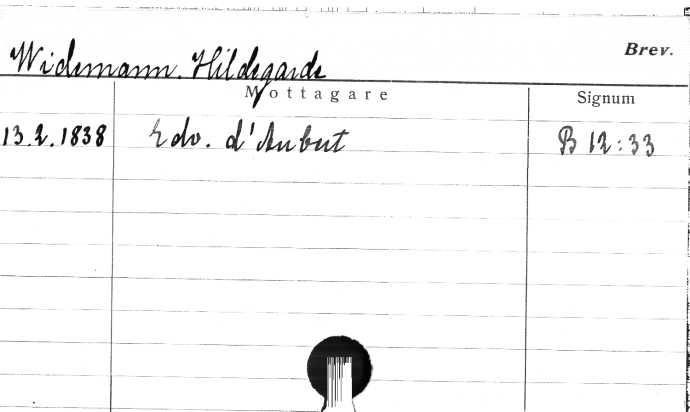 Widemann. Hildegarde
Brev.
Mottagare
Signum
13.2.1838 Edv. d'Aubut B 12:33